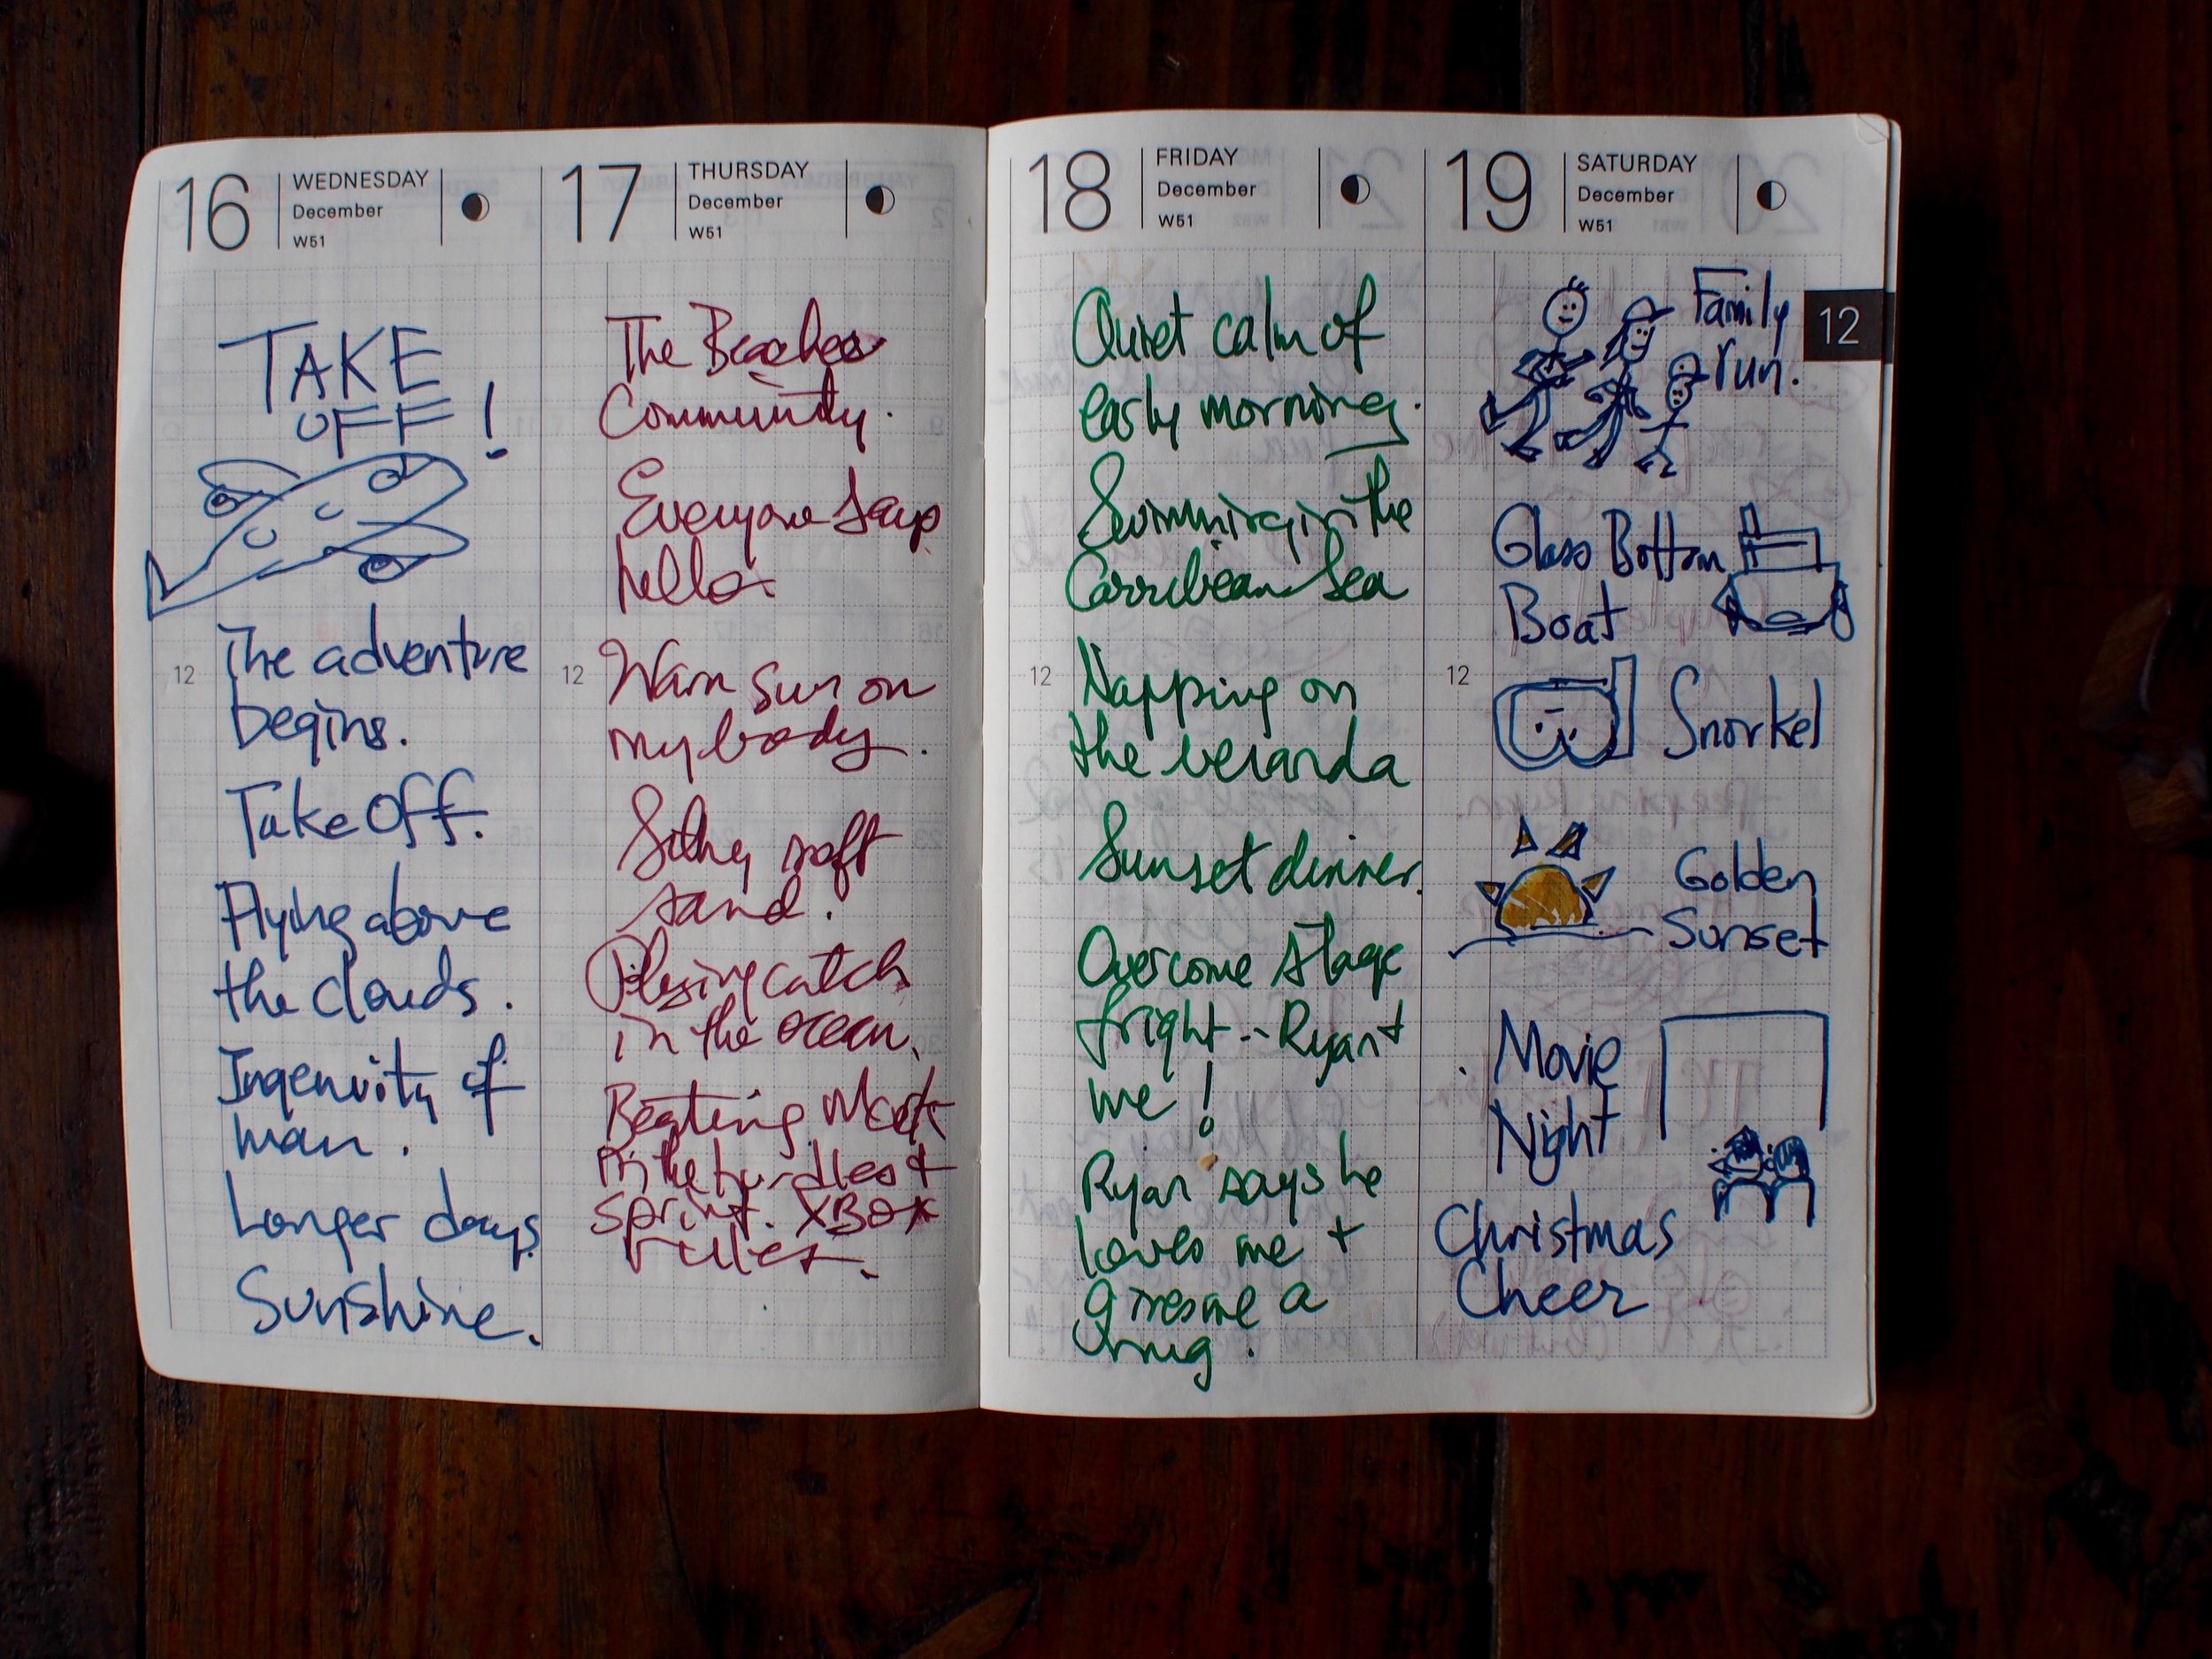 16
WEDNESDAY
December
W51
TAKE
OFF!
12
The adventure
begins.
Take Off.
Flying above
the clouds.
Ingenuity of
man.
Longer days.
Sunshine.
17
THURSDAY
December
W51
The Beaches
Community.
Everyone says
hello.
12
Warm sun on
my body.
Silky soft
sand.
Playing catch
in the ocean.
Beating
in the hurdles +
sprint. XBOX
rules.
18
FRIDAY
December
W51
Quiet calm of
early morning.
Swimming in the
Carribean Sea
12
Napping on
the veranda
Sunset dinner.
Overcome stage
fright -- Ryan +
me!
Ryan says he
loves me +
gives me a
hug.
19
SATURDAY
December
W51
Family
run.
12
Glass Bottom
Boat
12
Snorkel
Golden
Sunset
Movie
Night
Christmas
Cheer